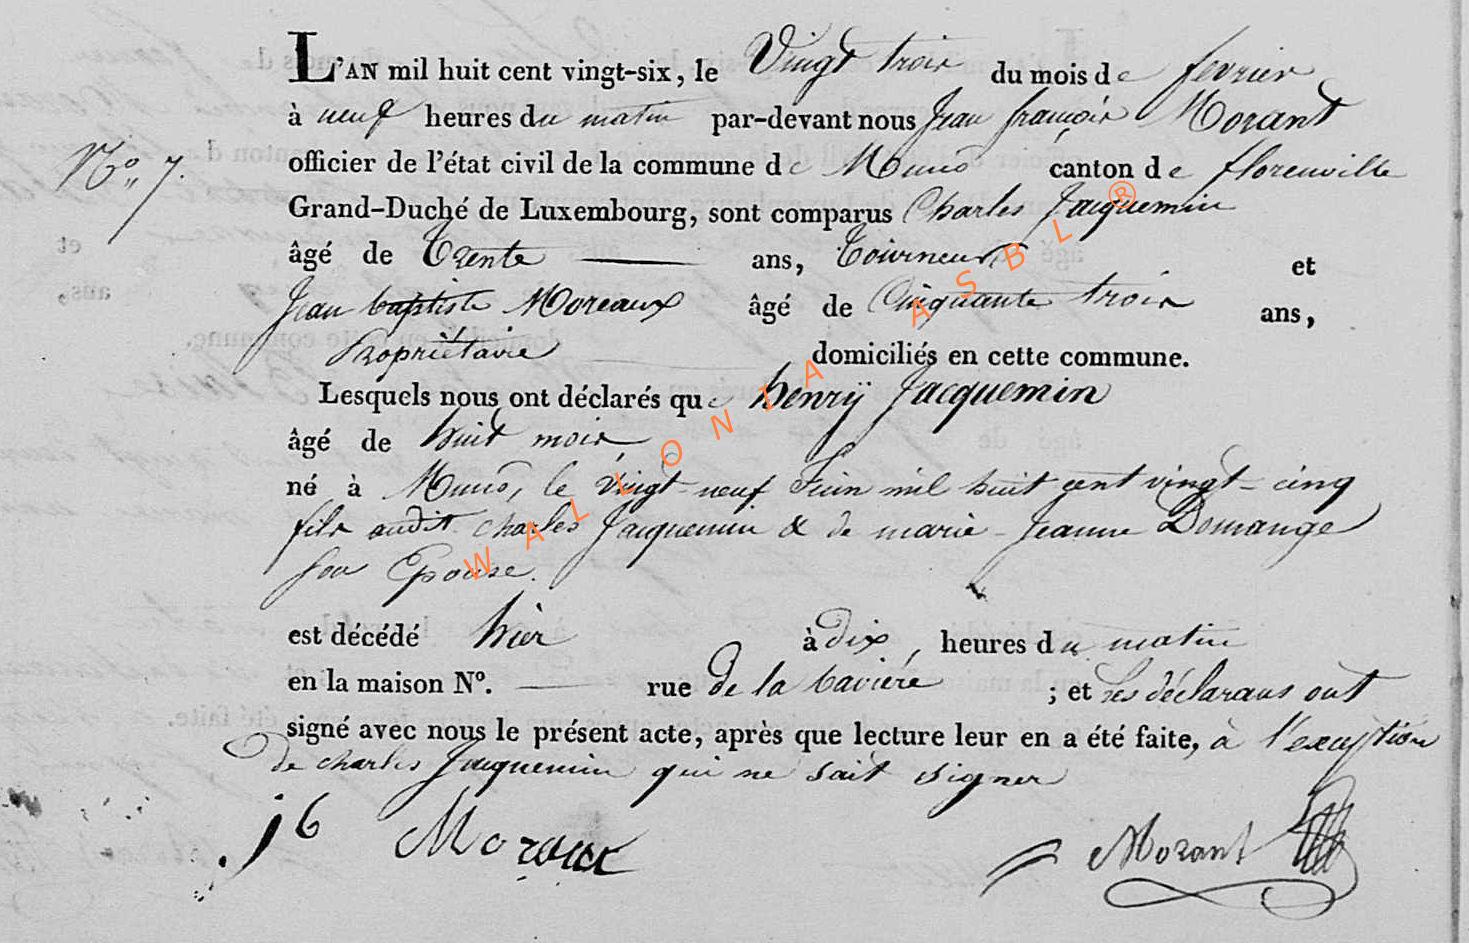 L'AN mil huit cent vingt-six, le Vingt trois du mois de fevrier
à neuf heures du matin par-devant nous Jean françois Morant
N° 7.
officier de l'état civil de la commune de Muno canton de florenville
Grand-Duché de Luxembourg, sont comparus Charles Jacquemin
âgé de Trente ans, Tourneur et
Jean baptiste Moreaux âgé de Cinquante trois ans,
Propriétaire domiciliés en cette commune.
Lesquels nous ont déclarés que henrÿ Jacquemin
âgé de huit mois
né à Muno, le vingt-neuf Juin mil huit cent vingt-cinq
fils audit charles Jacquemin & de marie-Jeanne Domange
son Epouse.
est décédé hier à dix, heures du matin
en la maison N°. rue de la baviere ; et Les déclarans ont
signé avec nous le présent acte, après que lecture leur en a été faite, à l'exception
de charles Jacquemin qui ne sait signer
jb Moraux Morant
WALLONIA ASBL®